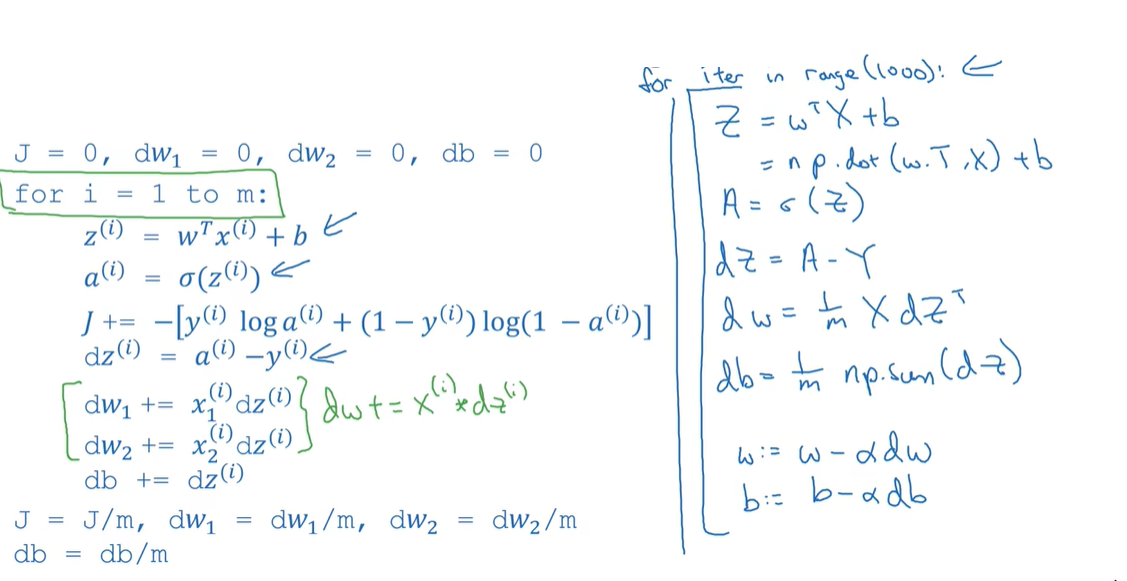 J = 0, dw₁ = 0, dw₂ = 0, db = 0
for i = 1 to m:
z⁽ⁱ⁾ = wᵀx⁽ⁱ⁾ + b ←
a⁽ⁱ⁾ = σ(z⁽ⁱ⁾) ←
J += −[y⁽ⁱ⁾ log a⁽ⁱ⁾ + (1 − y⁽ⁱ⁾) log(1 − a⁽ⁱ⁾)]
dz⁽ⁱ⁾ = a⁽ⁱ⁾ −y⁽ⁱ⁾ ←
dw₁ += x₁⁽ⁱ⁾dz⁽ⁱ⁾
dw₂ += x₂⁽ⁱ⁾dz⁽ⁱ⁾
dw += x⁽ⁱ⁾ * dz⁽ⁱ⁾
db += dz⁽ⁱ⁾
J = J/m, dw₁ = dw₁/m, dw₂ = dw₂/m
db = db/m
for iter in range(1000): ←
Z = wᵀX + b
= np.dot(w.T, X) + b
A = σ(Z)
dZ = A - Y
dw = 1/m X dZᵀ
db = 1/m np.sum(dZ)
w := w - αdw
b := b - αdb